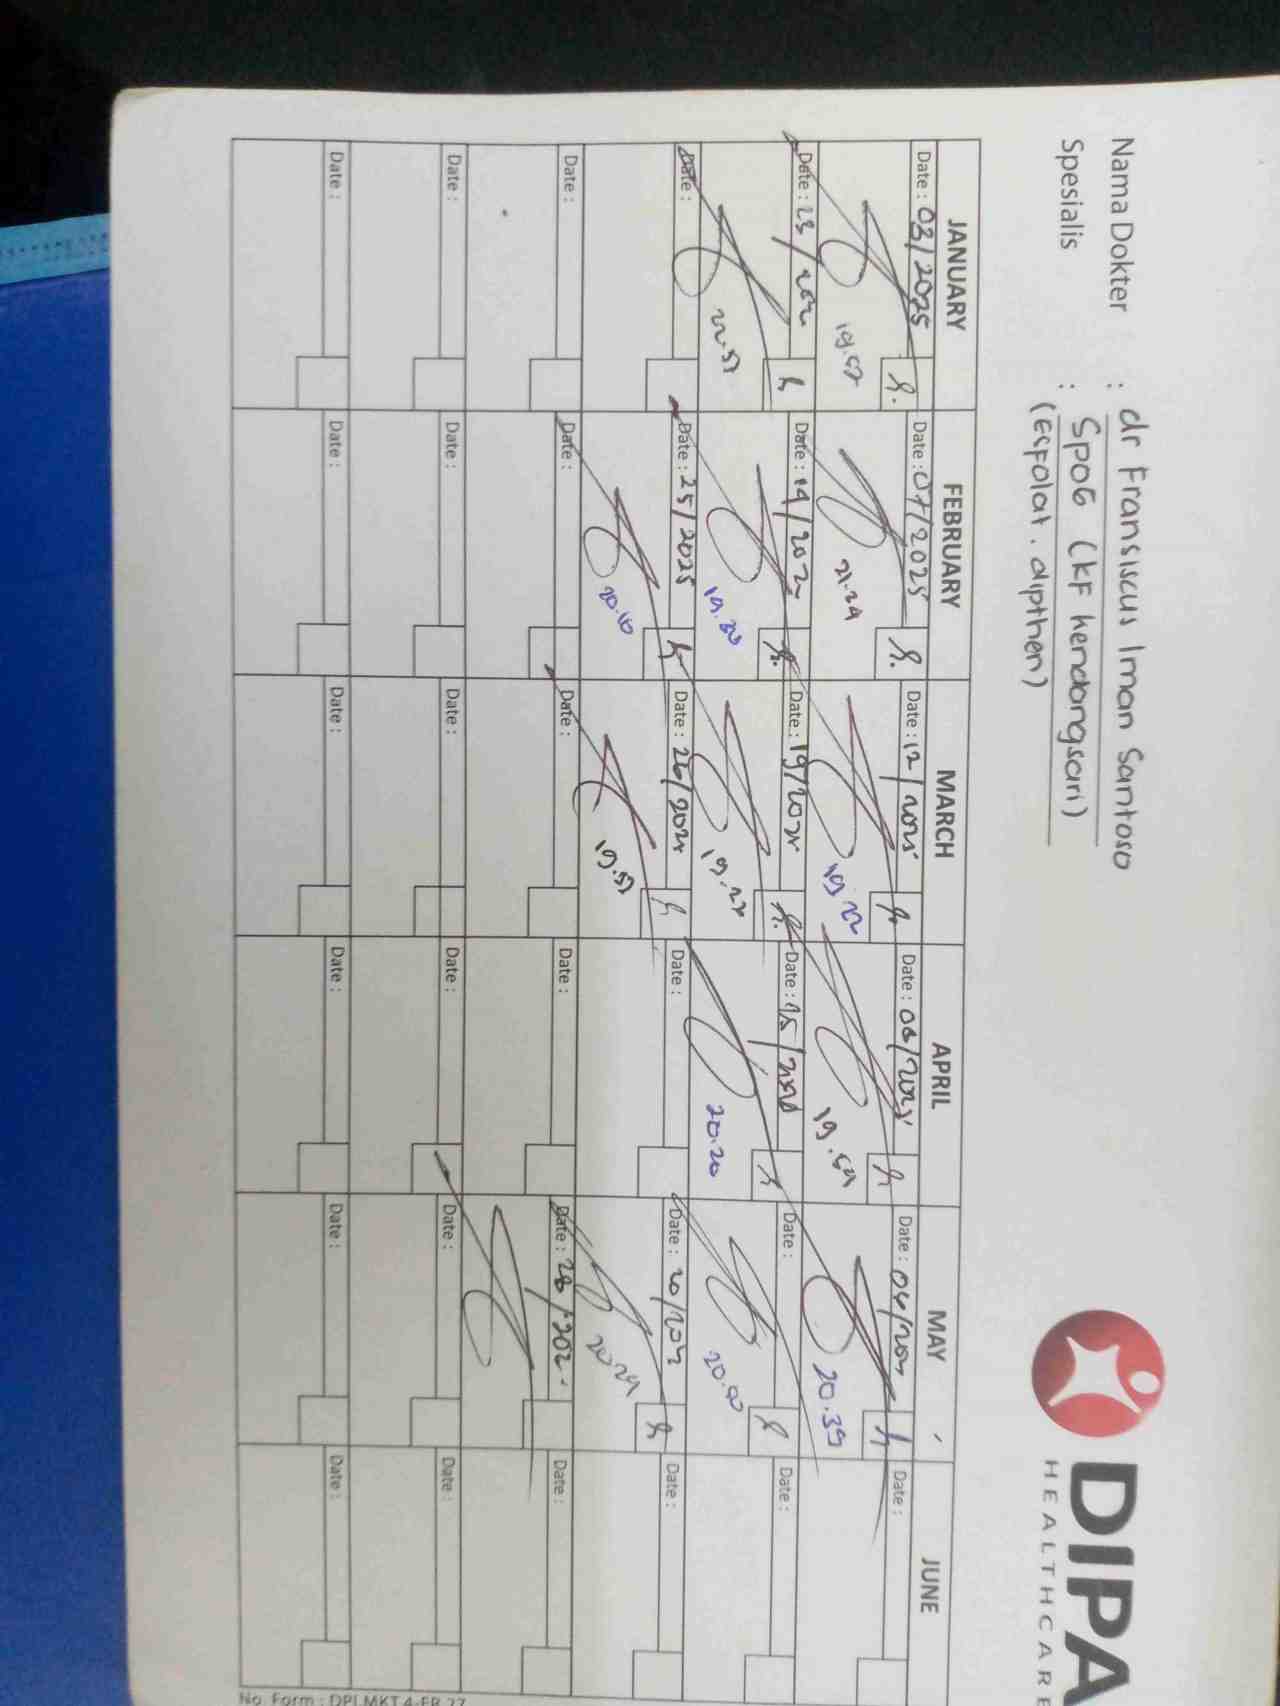 DIPA
HEALTHCARE
Nama Dokter : dr Fransiscus Iman Santoso
Spesialis : SpOG (KF Kendangsari)
(Esfolat. dipthen)
JANUARY FEBRUARY MARCH APRIL MAY JUNE
Date : 03/2025 Date : 07/2025 Date : 12/2025 Date : 08/2025 Date : Date :
19.57 21.24 19.22 19.54 20.39
Date : 23/202 Date : 14/202 Date : 19/202 Date : 15/ Date : Date :
22.57 19.30 19.27 20.20 20.00
Date : Date : 25/2025 Date : 26/202 Date : Date : 20/202 Date :
20.10 19.57 20.24
Date : Date : Date : Date : Date : 28/202 Date :
Date : Date : Date : Date : Date : Date :
Date : Date : Date : Date : Date : Date :
No. Form : DPI.MKT.4-FR.27